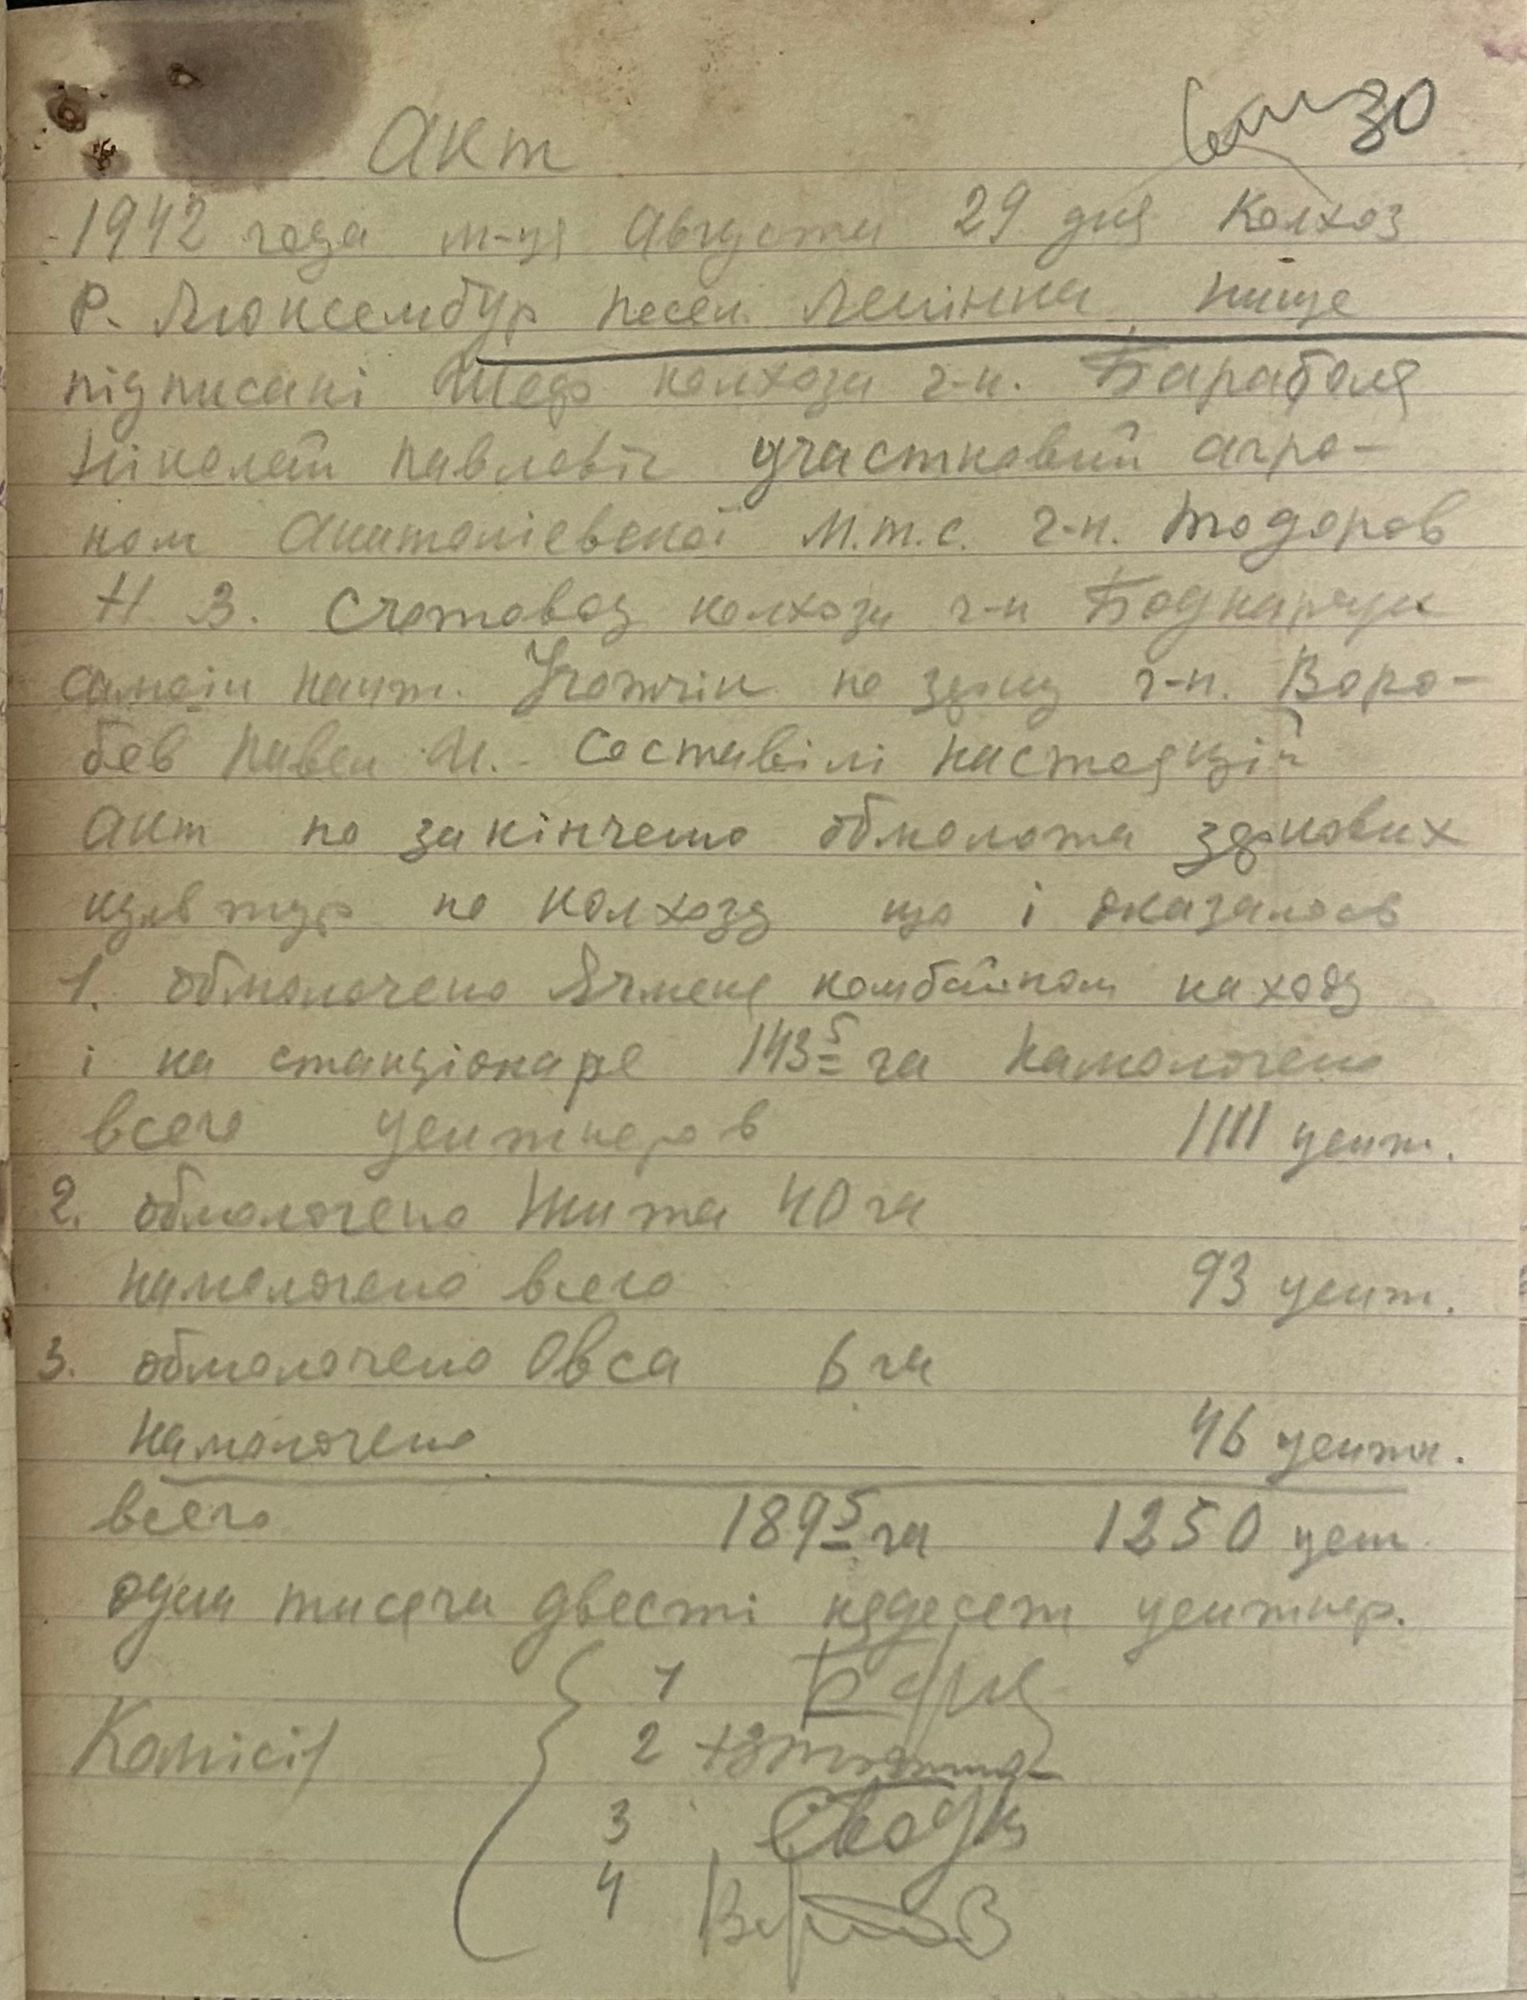 30
Акт
1942 года м-ця Августа 29 дня Колхоз
Р. Люксембур посел. Ленінка, нище
підписані Шеф колхоза г-н. Бараболя
Ніколай Павловіч участковий агро-
ном Анатоліевской М.т.с. г-н. Тодоров
Н З. Счотовод колхоза г-н Боднарчук
самоіл пант. Учотчік по зерну г-н. Воро-
бев Павел И. Составілі настоящій
акт по закінчено обмолота зернових
культур по колхозу що і оказалось
1. обмолочено Ячменя комбайном находу
і на станціонаре 143 5 га Намолочено
всего центнеров 1111 цент.
2. обмолочено Жита 40 га
намолочено всего 93 цент.
3. обмолочено Овса 6 га
намолочено 46 центн.
всего 189 5 га 1250 цент
одна тисеча двесті пядесет центнер.
Комісія
1
2
3
4